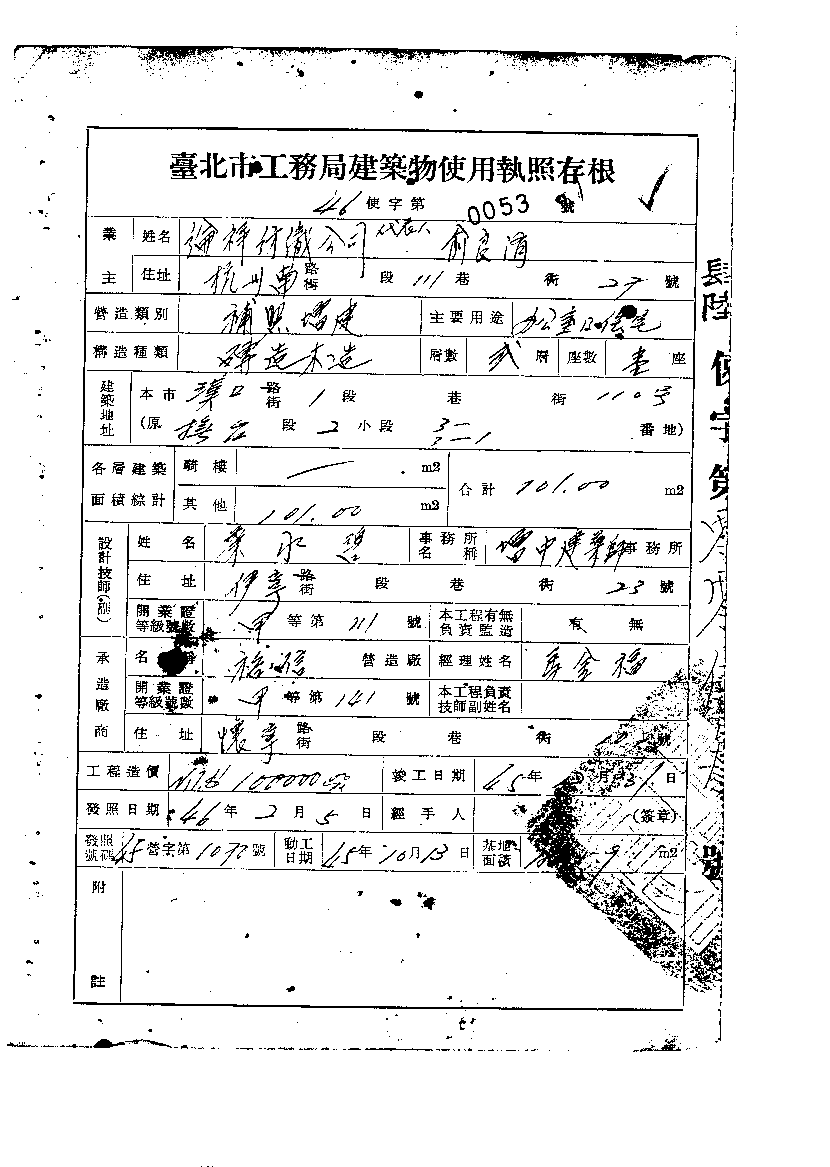 臺北市工務局建築物使用執照存根
46 使字第 0053 號
業主 姓名 通祥紡織公司 代表人 俞良濱
住址 杭州南 路街 段 111 巷 街 27 號
營造類別 補照增建 主要用途 办公室及住宅
構造種類 磚造木造 層數 貳 層 座數 壹 座
建築地址 本市 漢口 路街 1 段 巷 街 110号
(原 撫台 段 2 小段 3-1 番地)
各層建築面積綜計 騎樓 — m2 合計 101.00 m2
其他 101.00 m2
設計技師(副) 姓名 葉永 事務所名稱 增中建築師事務所
住址 路街 段 巷 街 23 號
開業證等級號數 甲 等第 211 號 本工程有無負責監造 有 無
承造廠商 名 營造廠 經理姓名 金福
開業證等級號數 甲 等第 141 號 本工程負責技師副姓名
住址 懷寧 路街 段 巷 街 號
工程造價 100000 竣工日期 45 年 月 31 日
發照日期 46 年 2 月 5 日 經手人 (簽章)
發照號碼 45 營字第 1072 號 動工日期 45 年 10 月 13 日 基地面積 m2
附註
肆陸使字第 號